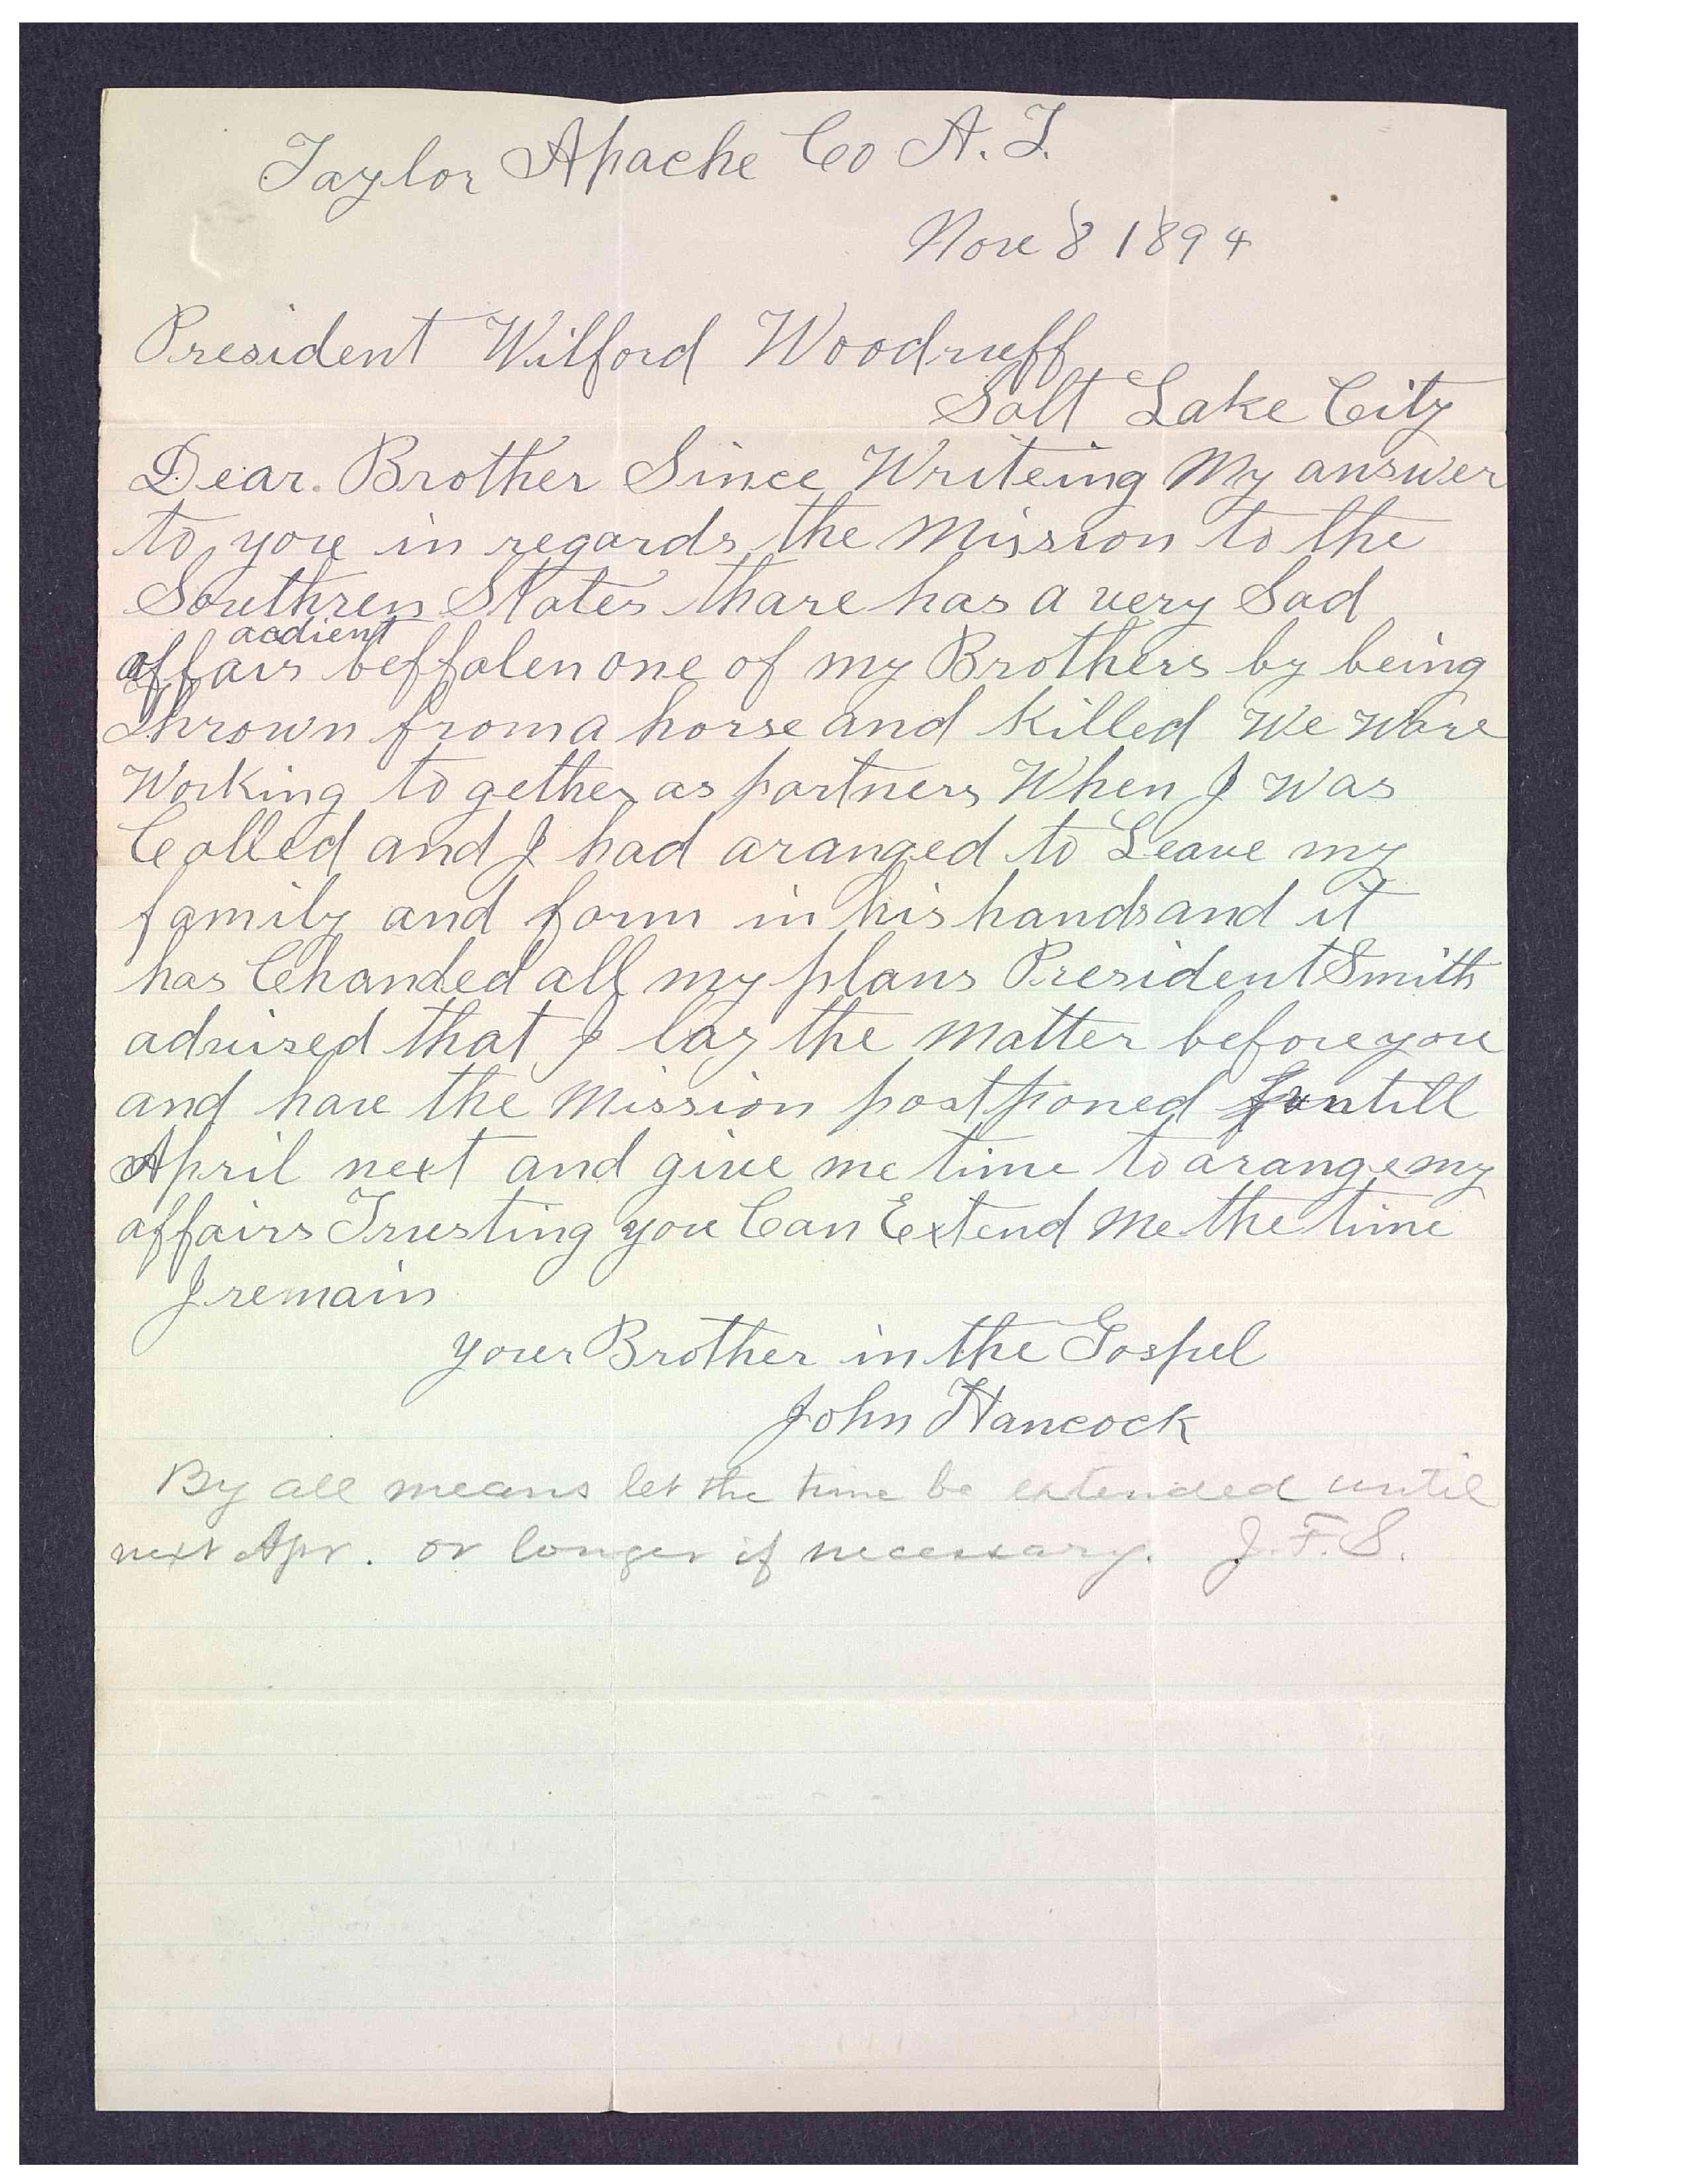 Taylor Apache Co A. T.
Nov 8 1894
President Wilford Woodruff
Salt Lake City
Dear Brother Since Writeing My answer
to you in regards the Mission to the
Southren States thare has a very Sad
accdient
affair beffalen one of my Brothers by being
thrown from a horse and Killed We ware
Working to gether as partners When I was
Called and I had aranged to Leave my
family and farm in his hands and it
has Chanded all my plans President Smith
advised that I lay the Matter before you
and have the Mission postponed untill
April next and give me time to arange my
affairs Trusting you Can Extend Me the time
I remain
your Brother in the Gospel
John Hancock
By all means let the time be extended until
next Apr. or longer if necessary. J. F. S.